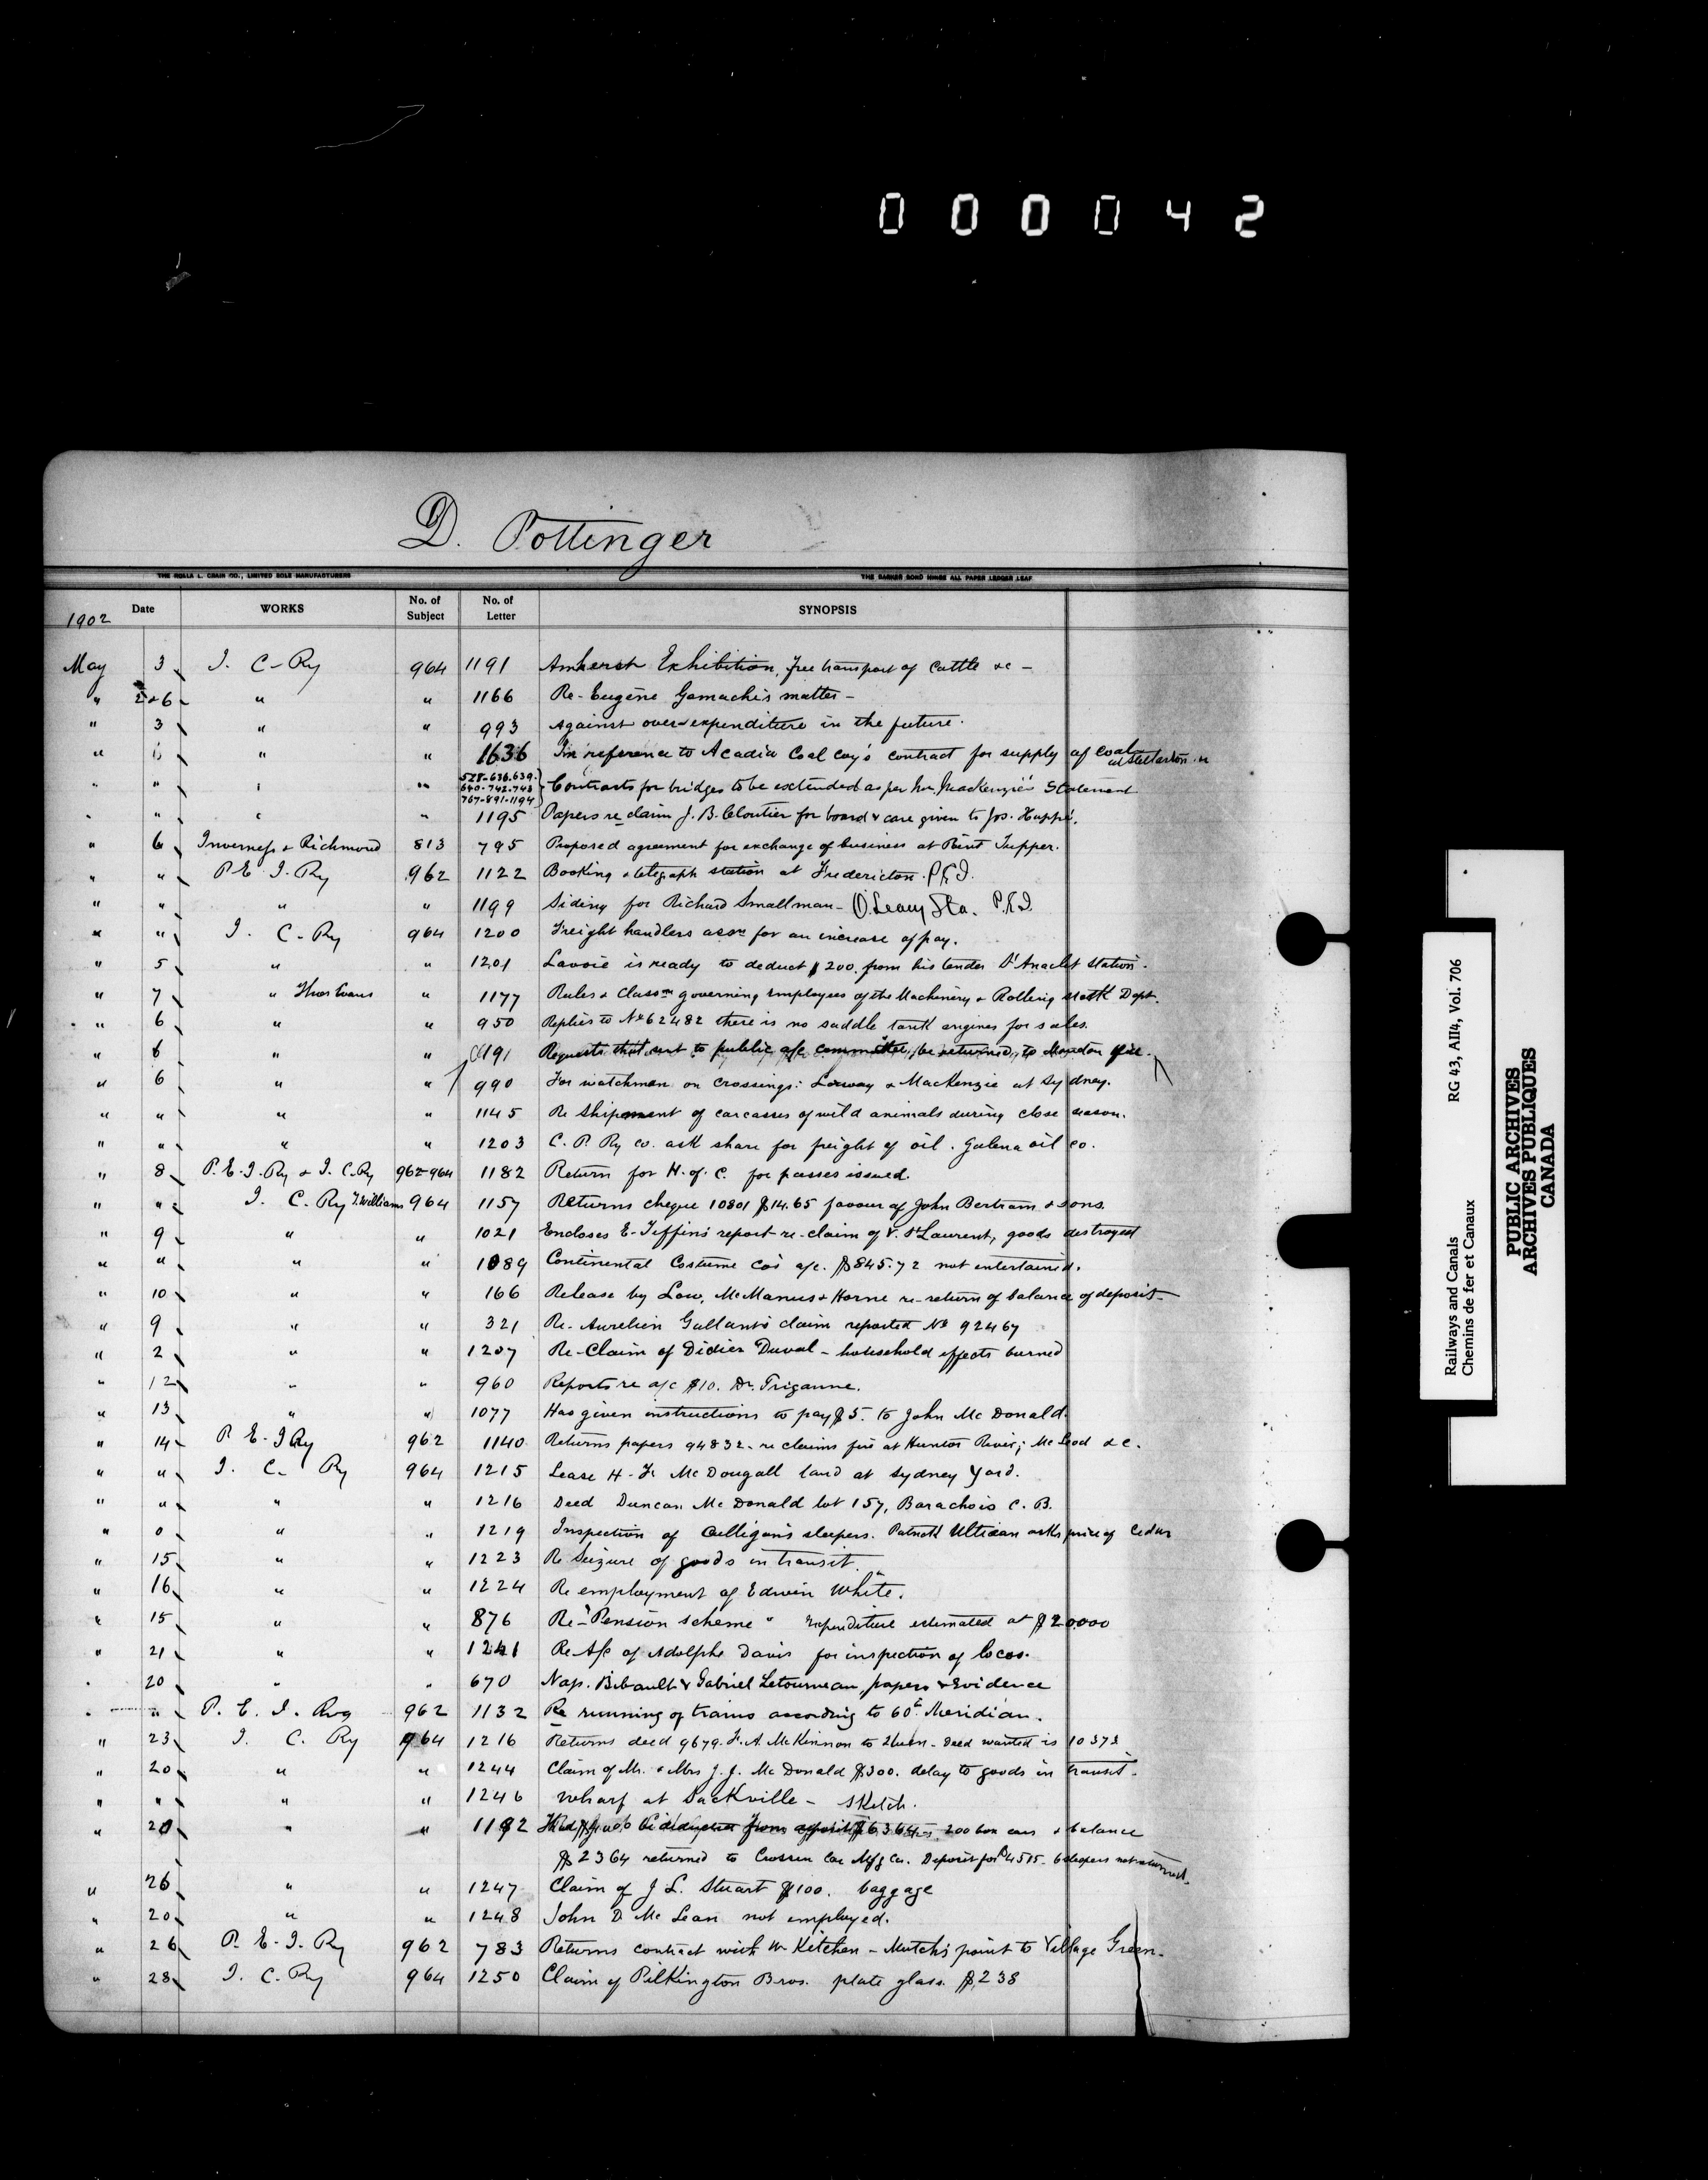 000042
D. Pottinger
THE ROLLA L. CRAIN CO., LIMITED SOLE MANUFACTURERS THE BARKER BOND HINGE ALL PAPER LEDGER LEAF
1902 Date WORKS No. of Subject No. of Letter SYNOPSIS
May 3 I. C-Ry 964 1191 Amherst Exhibition, free transport of Cattle &c -
" 2+6 " " 1166 Re-Eugène Gamache's matter -
" 3 " " 993 Against over-expenditure in the future.
" " " 1636 In reference to Acadia Coal Coy's contract for supply of coal at Stellarton
528-636.639.
" 640-742-743 Contracts for bridges to be extended as per Mr. Mackenzie's Statement
767-891-1194
" " 1195 Papers re claim J. B. Cloutier for board & care given to Jos. Huppé.
" 6 Inverness & Richmond 813 795 Proposed agreement for exchange of business at Point Tupper.
" " P. E. I. Ry 962 1122 Booking & telegraph station at Fredericton. P.E.I.
" " " " 1199 Siding for Richard Smallman - O'Leary Sta. P.E.I.
" " I. C-Ry 964 1200 Freight handlers assn for an increase of pay.
" 5 " " 1201 Lavoie is ready to deduct $200. from his tender St Anaclet station.
" 7 " Thos Evans " 1177 Rules & Classon governing employees of the Machinery & Rolling stock Dept.
" 6 " " 950 Replies to No 62482 there is no saddle tank engines for sales.
" 6 " " 1191 Requests that sent to public a/c committee, be returned, to Moncton
" 6 " " 990 For watchman on crossings: Lorway & MacKenzie at Sydney.
" " " " 1145 Re shipment of carcasses of wild animals during close season.
" " " " 1203 C. P. Ry co. ask share for freight of oil. Galena oil co.
" 8 P. E. I. Ry & I. C. Ry 962-964 1182 Return for H. of C. for passes issued.
" " I. C. Ry T. Williams 964 1157 Returns cheque 10801 $14.65 favour of John Bertram & sons.
" 9 " " 1021 Encloses E. Tiffin's report re-claim of V. St Laurent, goods destroyed
" " " " 1089 Continental Costume Co's a/c. $845.72 not entertained.
" 10 " " 166 Release by Low, McManus & Horne re-return of balance of deposit -
" 9 " " 321 Re-Aurelien Gallant's claim reported No 92467
" 2 " " 1207 Re-Claim of Didier Duval - household effects burned
" 12 " " 960 Reports re a/c $10. Dr. Triganne.
" 13 " " 1077 Has given instructions to pay $5. to John Mc Donald.
" 14 P. E. I Ry 962 1140 Returns papers 94832. re claims fire at Hunter River; Mc Leod &c.
" " I. C. Ry 964 1215 Lease H. Mc Dougall land at Sydney Yard.
" " " " 1216 Deed Duncan Mc Donald lot 157, Barachois C. B.
" " " 1219 Inspection of Culligan's sleepers. Patrick Ultican asks price of Cedar
" 15 " " 1223 Re Seizure of goods in transit.
" 16 " " 1224 Re employment of Edwin White.
" 15 " " 876 Re-"Pension scheme" expenditure estimated at $20.000
" 21 " " 1241 Re A/c of Adolphe Davis for inspection of locos.
" 20 " " 670 Nap. Bibault & Gabriel Letourneau, papers & Evidence
" " P. E. I. Rwy 962 1132 Re running of trains according to 60th Meridian.
" 23 I. C. Ry 964 1216 Returns deed 9679. A. McKinnon to - Deed wanted is 10373
" 20 " " 1244 Claim of Mr. & Mrs J. J. Mc Donald $300. delay to goods in transit.
" " " " 1246 Wharf at Sackville - Sketch.
" 20 " " 1192 from deposit $6364 200 box cars & balance
$2364 returned to Crossen Car Mfg Co. Deposit for $4515 - 6 sleepers not returned.
" 26 " " 1247 Claim of J L. Stuart $100. baggage
" 20 " " 1248 John D. Mc Lean not employed.
" 26 P. E. I. Ry 962 783 Returns contract with W Kitchen - Mutch's point to Village Green.
" 28 I. C. Ry 964 1250 Claim of Pilkington Bros. plate glass. $238
Railways and Canals RG 43, AII4, Vol. 706
Chemins de fer et Canaux
PUBLIC ARCHIVES
ARCHIVES PUBLIQUES
CANADA